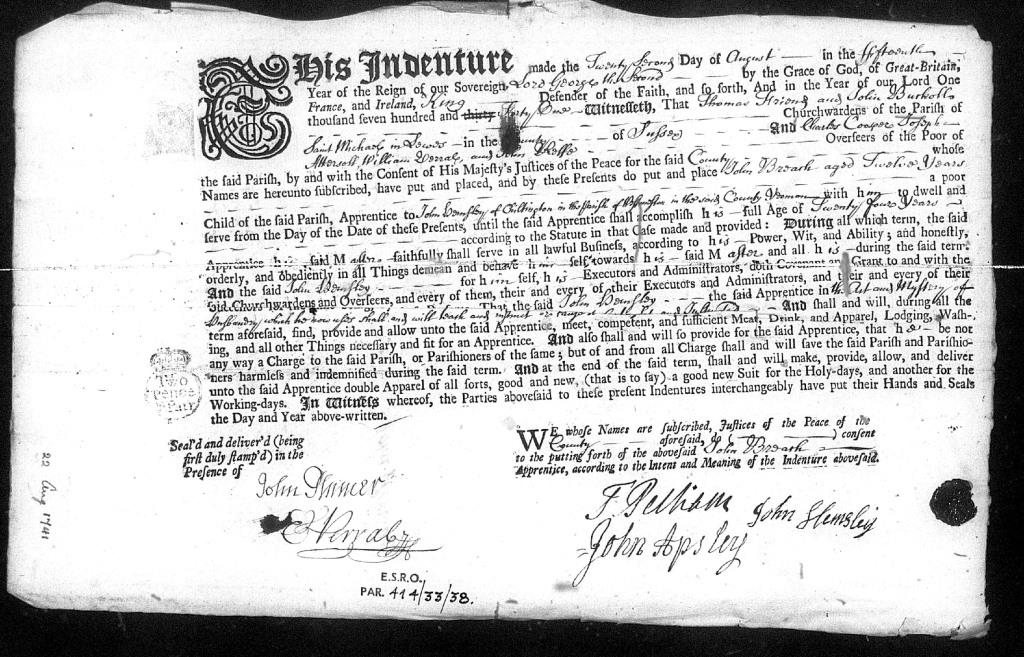 This Indenture made the Twenty Second Day of August in the fifteenth
Year of the Reign of our Sovereign Lord George the Second by the Grace of God, of Great-Britain,
France, and Ireland, King Defender of the Faith, and so forth, And in the Year of our Lord One
thousand seven hundred and thirty Forty One Witnesseth, That Thomas Friend and John
Churchwardens of the Parish of
Saint Michael in Lewes in the County of Sussex And Charles Cooper Joseph
Attersoll William Verral, and John Overseers of the Poor of
the said Parish, by and with the Consent of His Majesty's Justices of the Peace for the said County whose
Names are hereunto subscribed, have put and placed, and by these Presents do put and place John Breach aged Twelve Years
a poor
Child of the said Parish, Apprentice to John Hemsley of Chiltington in the Parish of in the said County Yeoman with him to dwell and
serve from the Day of the Date of these Presents, until the said Apprentice shall accomplish his full Age of Twenty four Years
according to the Statute in that Case made and provided: During all which term, the said
Apprentice his said Master faithfully shall serve in all lawful Business, according to his Power, Wit, and Ability; and honestly,
orderly, and obediently in all Things demean and behave himself towards his said Master and all his during the said term.
And the said John Hemsley for himself, his Executors and Administrators, doth Covenant and Grant to and with the
said Churchwardens and Overseers, and every of them, their and every of their Executors and Administrators, and their and every of their
That the said John Hemsley the said Apprentice in the Art and Mystery of
Husbandry which he now useth shall and will teach and instruct And shall and will, during all the
term aforesaid, find, provide and allow unto the said Apprentice, meet, competent, and sufficient Meat, Drink, and Apparel, Lodging, Wash-
ing, and all other Things necessary and fit for an Apprentice. And also shall and will so provide for the said Apprentice, that he be not
any way a Charge to the said Parish, or Parishioners of the same; but of and from all Charge shall and will save the said Parish and Parishio-
ners harmless and indemnified during the said term. And at the end of the said term, shall and will make, provide, allow, and deliver
unto the said Apprentice double Apparel of all sorts, good and new, (that is to say) a good new Suit for the Holy-days, and another for the
Working-days. In Witness whereof, the Parties abovesaid to these present Indentures interchangeably have put their Hands and Seals
the Day and Year above-written.
Two
Pence
Seal'd and deliver'd (being
first duly stamp'd) in the
Presence of
John Plumer
E Verral
WE whose Names are subscribed, Justices of the Peace of the
County aforesaid, do consent
to the putting forth of the abovesaid John Breach
Apprentice, according to the Intent and Meaning of the Indenture abovesaid.
T Pelham
John Hemsley
John Apsley
22 Aug 1741
E.S.R.O.
PAR. 414/33/38.